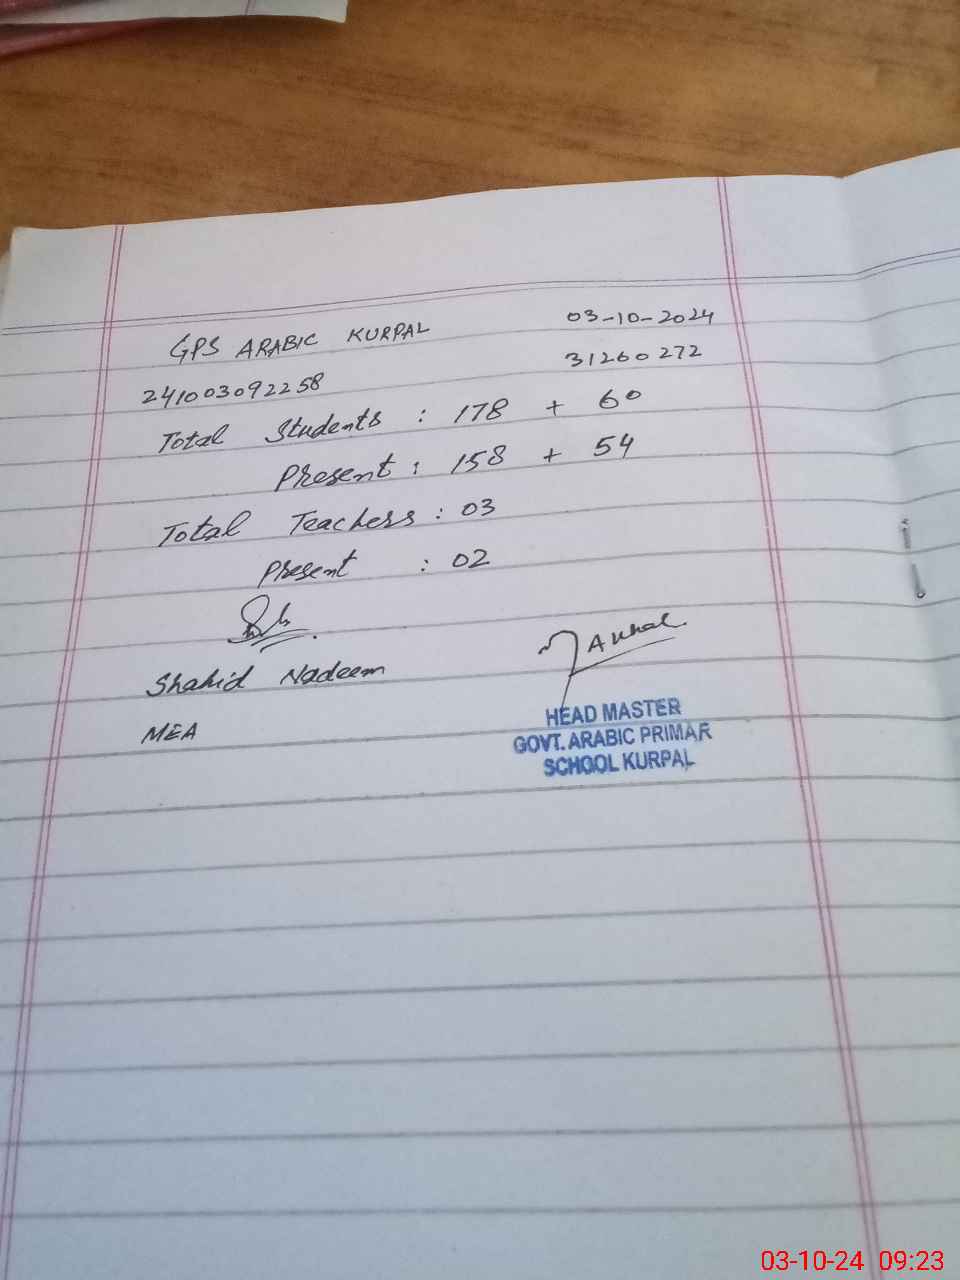 GPS ARABIC KURPAL 03-10-2024
241003092258 31260272
Total Students : 178 + 60
Present : 158 + 54
Total Teachers : 03
Present : 02
Shahid Nadeem
MEA
HEAD MASTER
GOVT. ARABIC PRIMAR
SCHOOL KURPAL
03-10-24 09:23